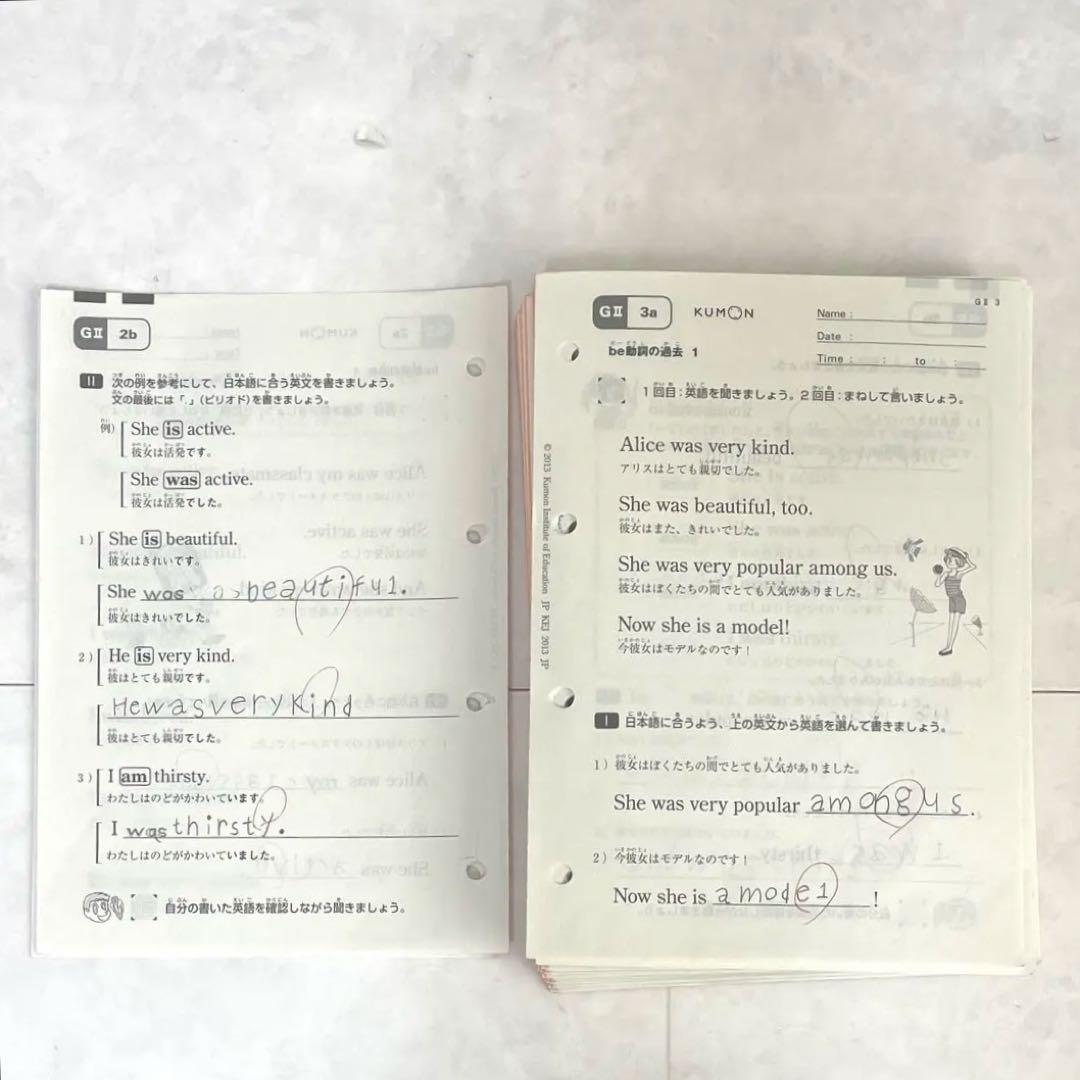 GⅡ 2b
KUMON
Ⅱ 次の例を参考にして、日本語に合う英文を書きましょう。
文の最後には「.」(ピリオド)を書きましょう。
例) She is active.
彼女は活発です。
She was active.
彼女は活発でした。
1) She is beautiful.
彼女はきれいです。
She was beautiful.
彼女はきれいでした。
2) He is very kind.
彼はとても親切です。
He was very kind
彼はとても親切でした。
3) I am thirsty.
わたしはのどがかわいています。
I was thirsty.
わたしはのどがかわいていました。
自分の書いた英語を確認しながら聞きましょう。
GⅡ 3
GⅡ 3a
KUMON
Name :
Date :
Time : : to :
be動詞の過去 1
1回目:英語を聞きましょう。2回目:まねして言いましょう。
Alice was very kind.
アリスはとても親切でした。
She was beautiful, too.
彼女はまた、きれいでした。
She was very popular among us.
彼女はぼくたちの間でとても人気がありました。
Now she is a model!
今彼女はモデルなのです!
© 2013 Kumon Institute of Education JP KEJ 2013 JP
Ⅰ 日本語に合うよう、上の英文から英語を選んで書きましょう。
1) 彼女はぼくたちの間でとても人気がありました。
She was very popular among us.
2) 今彼女はモデルなのです!
Now she is a model!